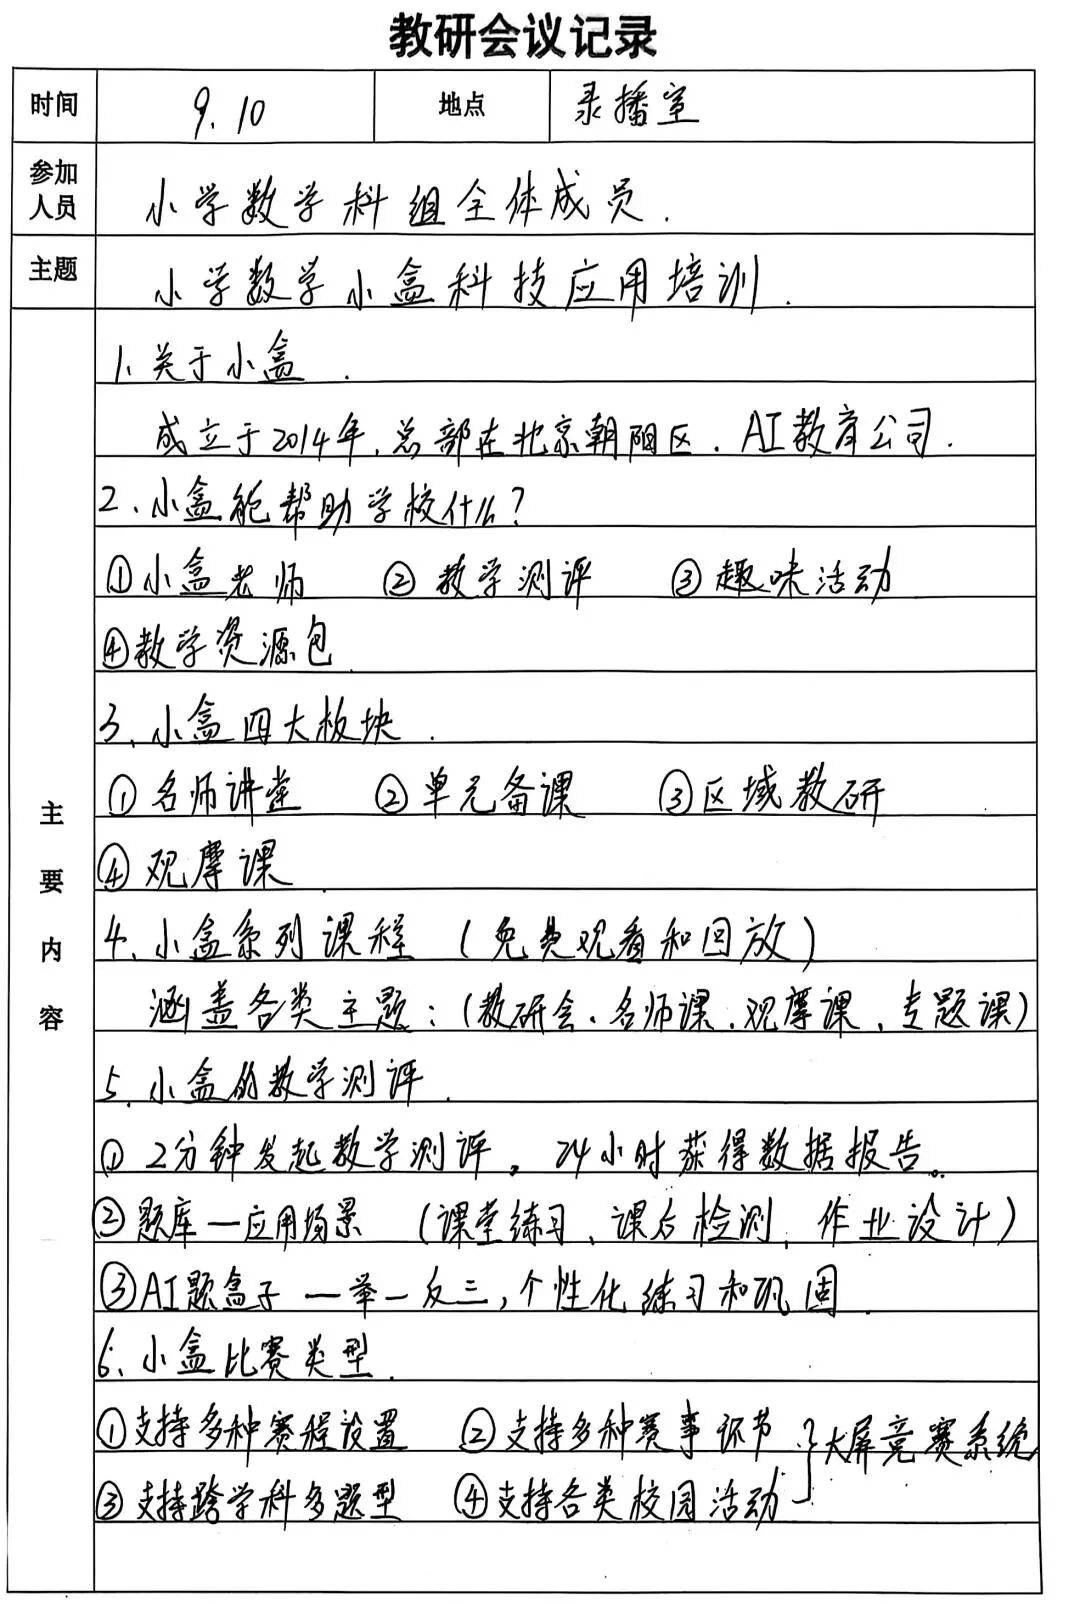 教研会议记录
时间 9.10 地点 录播室
参加人员 小学数学科组全体成员.
主题 小学数学小盒科技应用培训.
主要内容
1.关于小盒.
成立于2014年,总部在北京朝阳区.AI教育公司.
2.小盒能帮助学校什么?
①小盒老师 ②教学测评 ③趣味活动
④教学资源包
3.小盒四大板块.
①名师讲堂 ②单元备课 ③区域教研
④观摩课
4.小盒系列课程 (免费观看和回放)
涵盖各类主题:(教研会、名师课、观摩课、专题课)
5.小盒的教学测评.
①2分钟发起教学测评。24小时获得数据报告。
②题库—应用场景 (课堂练习、课后检测、作业设计)
③AI题盒子—举一反三,个性化练习和巩固.
6.小盒比赛类型.
①支持多种赛程设置 ②支持多种赛事环节 }大屏竞赛系统
③支持跨学科多题型 ④支持各类校园活动